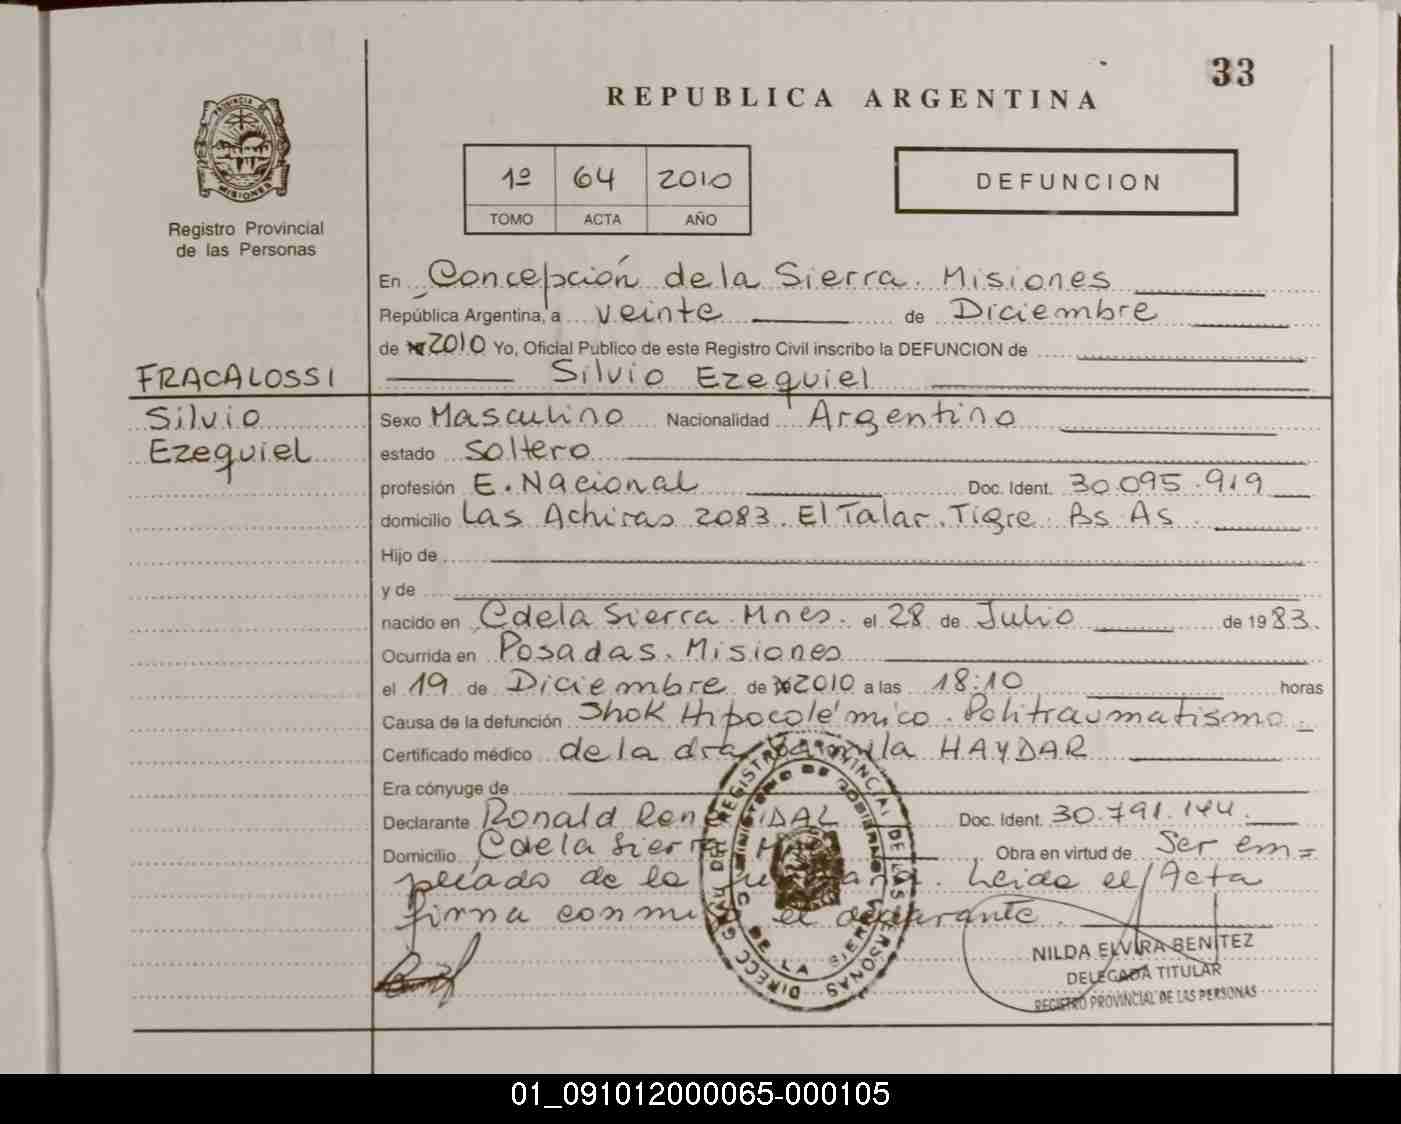 33
REPUBLICA ARGENTINA
PROVINCIA DE MISIONES
Registro Provincial
de las Personas
1º 64 2010
TOMO ACTA AÑO
DEFUNCION
En Concepción de la Sierra. Misiones
República Argentina, a veinte de Diciembre
de 2010 Yo, Oficial Publico de este Registro Civil inscribo la DEFUNCION de
FRACALOSSI
Silvio Ezequiel
Silvio
Ezequiel
Sexo Masculino Nacionalidad Argentino
estado soltero
profesión E. Nacional Doc. Ident. 30.095.919
domicilio Las Achiras 2083. El Talar. Tigre. Bs As.
Hijo de
y de
nacido en C de la Sierra. Mnes. el 28 de Julio de 1983.
Ocurrida en Posadas. Misiones
el 19 de Diciembre de 2010 a las 18:10 horas
Causa de la defunción Shok Hipocolémico. Politraumatismo
Certificado médico de la dra HAYDAR
Era cónyuge de
Declarante Ronald Doc. Ident. 30.791.144.
Domicilio C de la Sierra Obra en virtud de Ser em=
pleado de la Leida el Acta
firma conmigo el declarante.
NILDA ELVIRA BENITEZ
DELEGADA TITULAR
REGISTRO PROVINCIAL DE LAS PERSONAS
DIRECC GRAL DEL REGISTRO PROVINCIAL DE LAS PERSONAS
MINISTERIO DE GOBIERNO
C. DE LA SIERRA
01_091012000065-000105